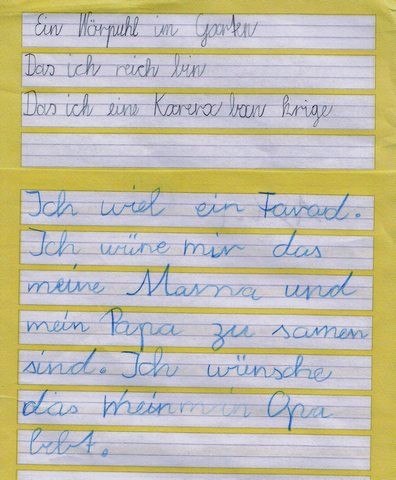 Ein Wörpuhl im Garten
Das ich reich bin
Das ich eine Karera ban krige
Ich wiel ein Farad.
Ich wüne mir das
meine Mama und
mein Papa zu samen
sind. Ich wünsche
das mein Opa
lebt.